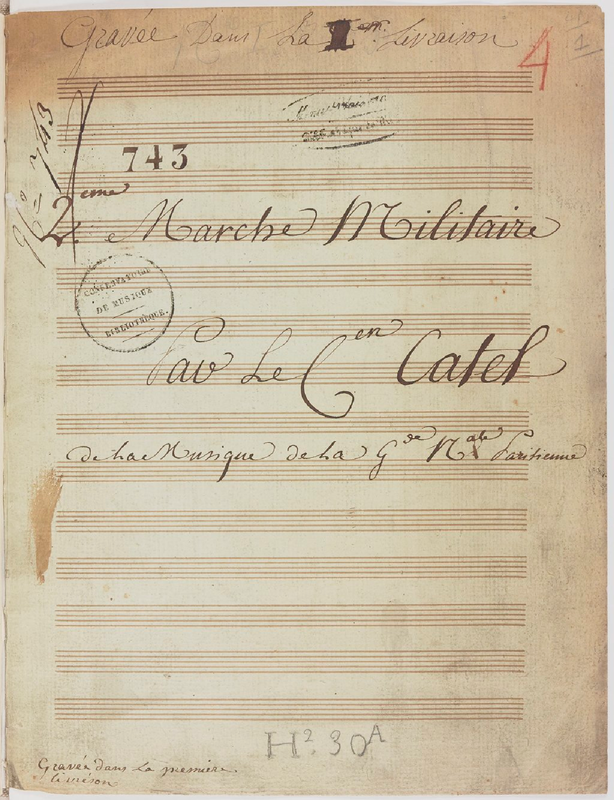 Gravée Dans La 1.em Livraison
4
1
N.º 743
743
2.eme Marche Militaire
CONSERVATOIRE
DE MUSIQUE
BIBLIOTHÈQUE.
Par Le C.en Catel
de La Musique de La G.de N.ale Parisienne
H². 30A
Gravée dans La première
livréson